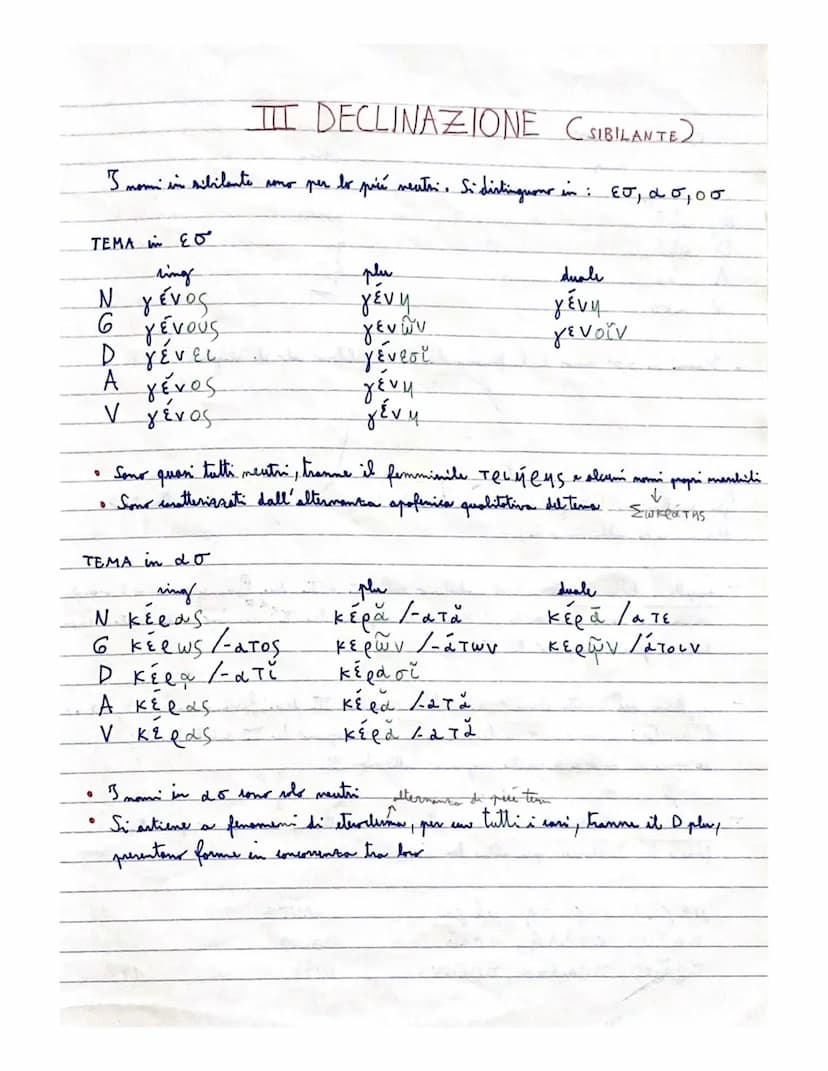 III DECLINAZIONE (SIBILANTE)
I nomi in sibilante sono per lo più neutri. Si distinguono in: εσ, ασ, οσ
TEMA in εσ
sing plu duale
N γένος γένη γένη
G γένους γενῶν γενοῖν
D γένει γένεσῐ
A γένος γένη
V γένος γένη
• Sono quasi tutti neutri, tranne il femminile τριήρης e alcuni nomi propri maschili
• Sono caratterizzati dall'alternanza apofonica qualitativa del tema
↓ Σωκράτης
TEMA in ασ
sing plu duale
N κέρας κέρᾰ /-ατᾰ κέρᾱ /ατε
G κέρως /-ατος κερῶν /-άτων κερῷν /άτοιν
D κέρᾳ /-ατῐ κέρασῐ
A κέρας κέρᾰ /-ατᾰ
V κέρας κέρᾰ /-ατᾰ
• I nomi in ασ sono solo neutri
alternanza di più temi
• Si assiste a fenomeni di eteroclisia, per cui tutti i casi, tranne il D plu,
presentano forme in concorrenza tra loro